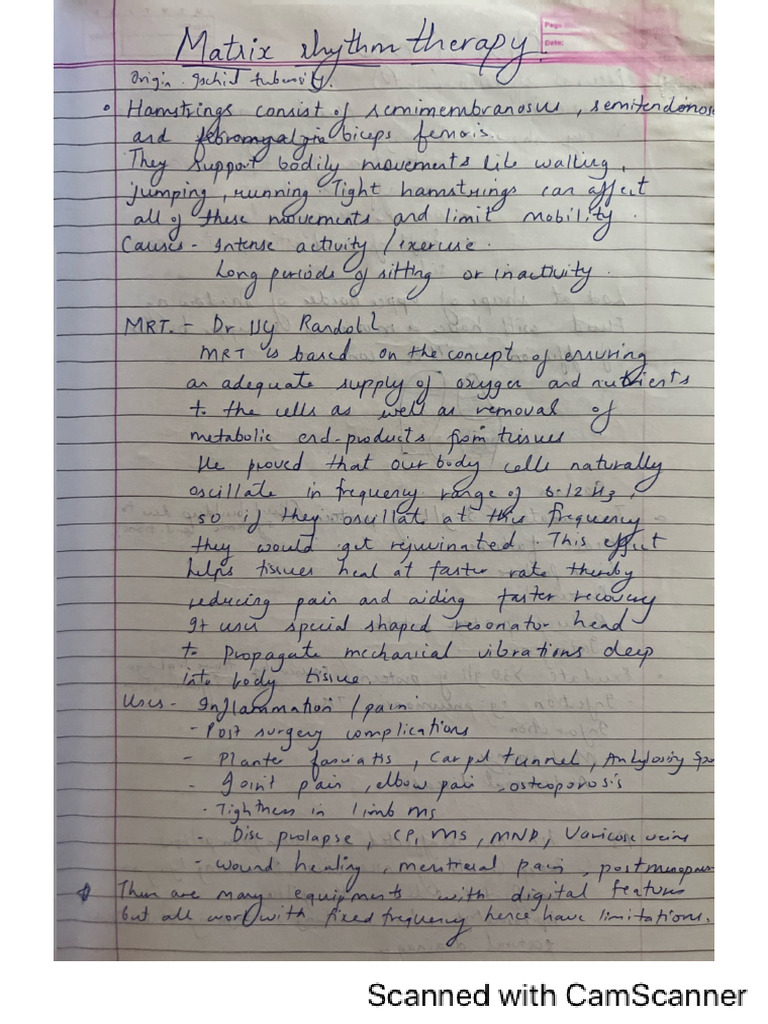 Page No.
Date:
Matrix rhythm therapy.
Origin - Ischial tuberosity.
Hamstrings consist of semimembranosus, semitendonos
and fibromyalgia biceps femoris.
They support bodily movements like walking,
jumping, running. Tight hamstrings can affect
all of these movements and limit mobility.
Causes - Intense activity / exercise.
Long periods of sitting or inactivity.
MRT. - Dr Randoll
MRT is based on the concept of ensuring
an adequate supply of oxygen and nutrients
to the cells as well as removal of
metabolic end-products from tissues
He proved that our body cells naturally
oscillate in frequency range of 8-12 Hz,
so if they oscillate at this frequency
they would get rejuvinated. This effect
helps tissues heal at faster rate thereby
reducing pain and aiding faster recovery
It uses special shaped resonator head
to propagate mechanical vibrations deep
into body tissue
Uses - Inflammation / pain
- Post surgery complications
- Planter fasciatis, Carpel tunnel, Ankylosing Spo
- Joint pain, elbow pain, osteoporosis
- Tightness in limb ms
- Disc prolapse, CP, MS, MND, Varicose veins
- wound healing, menstrual pain, postmenopaus
There are many equipments with digital features
but all work with fixed frequency hence have limitations.
Scanned with CamScanner